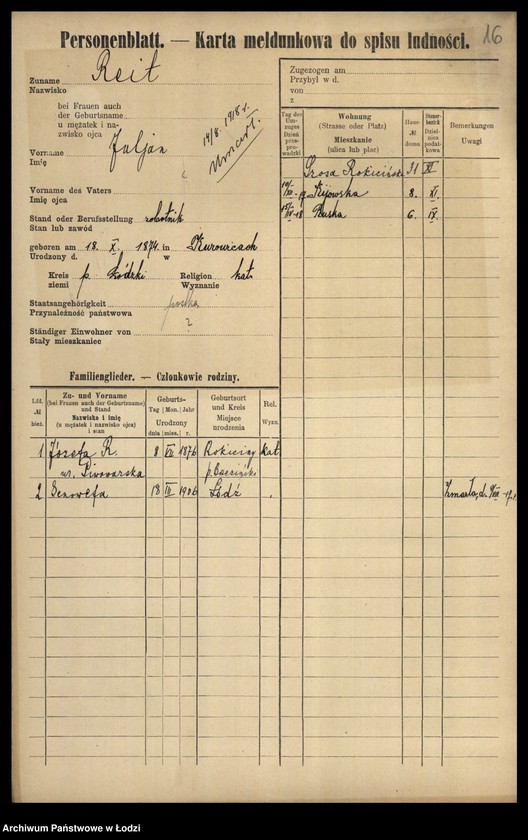 16
Personenblatt. — Karta meldunkowa do spisu ludności.
Zuname Reit
Nazwisko
bei Frauen auch
der Geburtsname
u mężatek i na-
zwisko ojca
14/8. 1918 r.
Umarł.
Vorname Juljan
Imię
Vorname des Vaters
Imię ojca
Stand oder Berufsstellung robotnik
Stan lub zawód
geboren am 18. X. 1874 in Kurowicach
Urodzony d. w
Kreis p. Łódzki Religion kat.
ziemi Wyznanie
Staatsangehörigkeit polska
Przynależność państwowa
?
Ständiger Einwohner von
Stały mieszkaniec
Zugezogen am
Przybył w d.
von
z
Tag des Um-zuges Dzień prze-prowadzki
Wohnung
(Strasse oder Platz)
Mieszkanie
(ulica lub plac)
Haus- № domu
Steuer-bezirk Dziel-nica podat-kowa
Bemerkungen
Uwagi
Szosa Rokicińska 31 XI
Kijowska 8. XI.
6. IX.
Familienglieder. — Członkowie rodziny.
Lfd. № bież.
Zu- und Vorname
(bei Frauen auch der Geburtsname)
und Stand
Nazwisko i imię
(u mężatek i nazwisko ojca)
i stan
Geburts-
Tag Mon. Jahr
Urodzony
dnia mies. r.
Geburtsort
und Kreis
Miejsce
urodzenia
Rel.
Wyzn.
1 Józefa R. 8 VII 1876 Rokiciny kat.
ur. Piwowarska p. Brzeziński
2 Genowefa 18 III 1906 Łódź
Zmarła, d.
Archiwum Państwowe w Łodzi